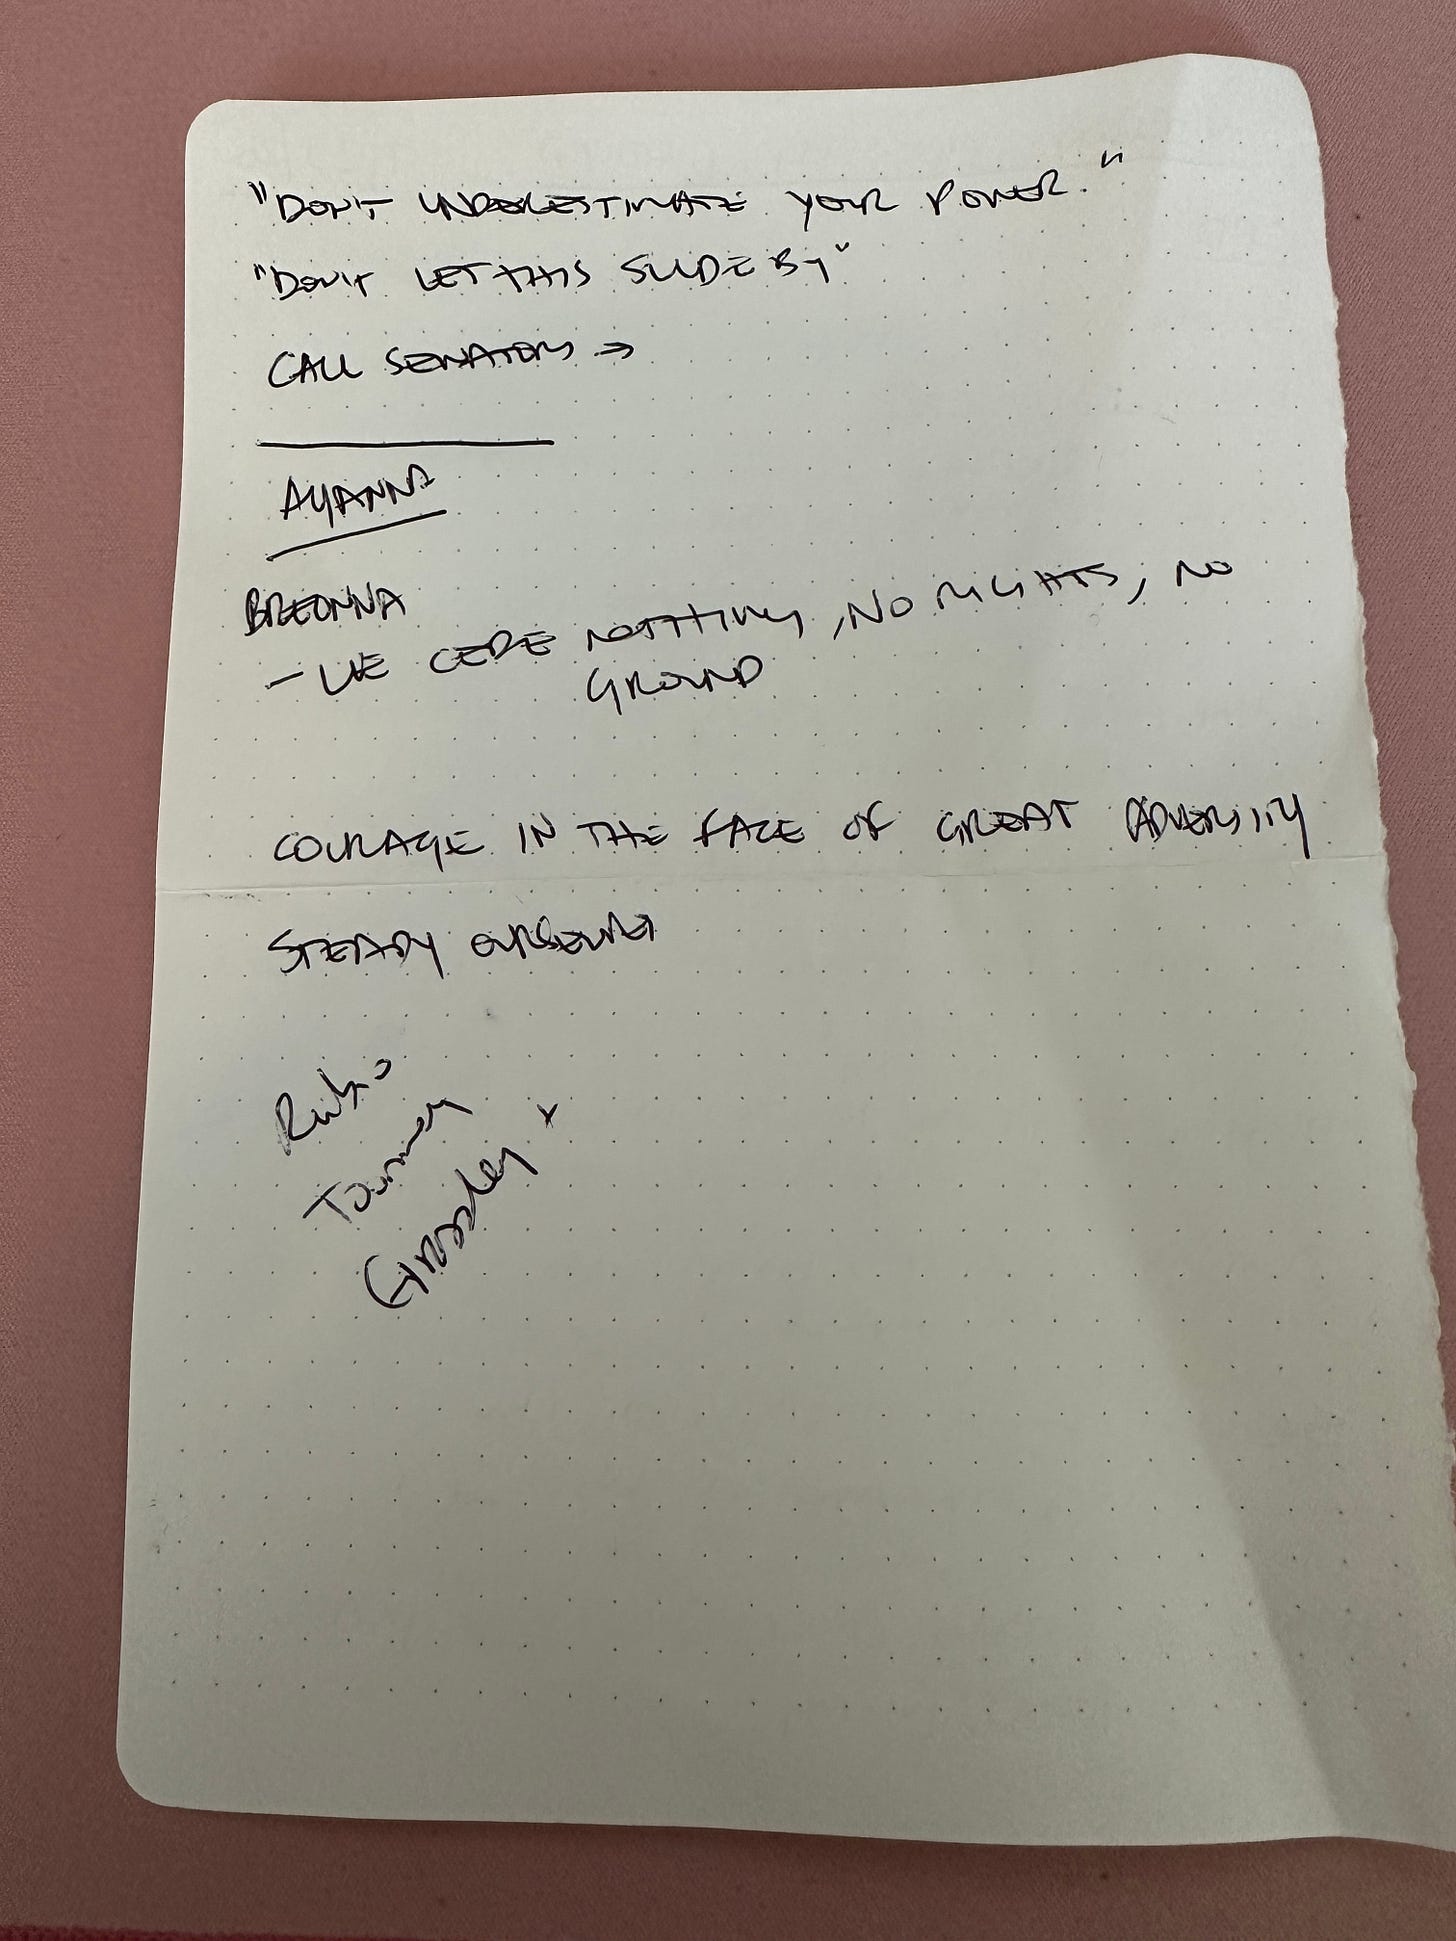 "DON'T UNDERESTIMATE YOUR POWER."
"DON'T LET THIS SLIDE BY"
CALL SENATORS →
AYANNA
BREONNA
- WE CEDE NOTHING, NO RIGHTS, NO
GROUND
COURAGE IN THE FACE OF GREAT ADVERSITY
STEADY OURSELVES
Rubio
Grassley x